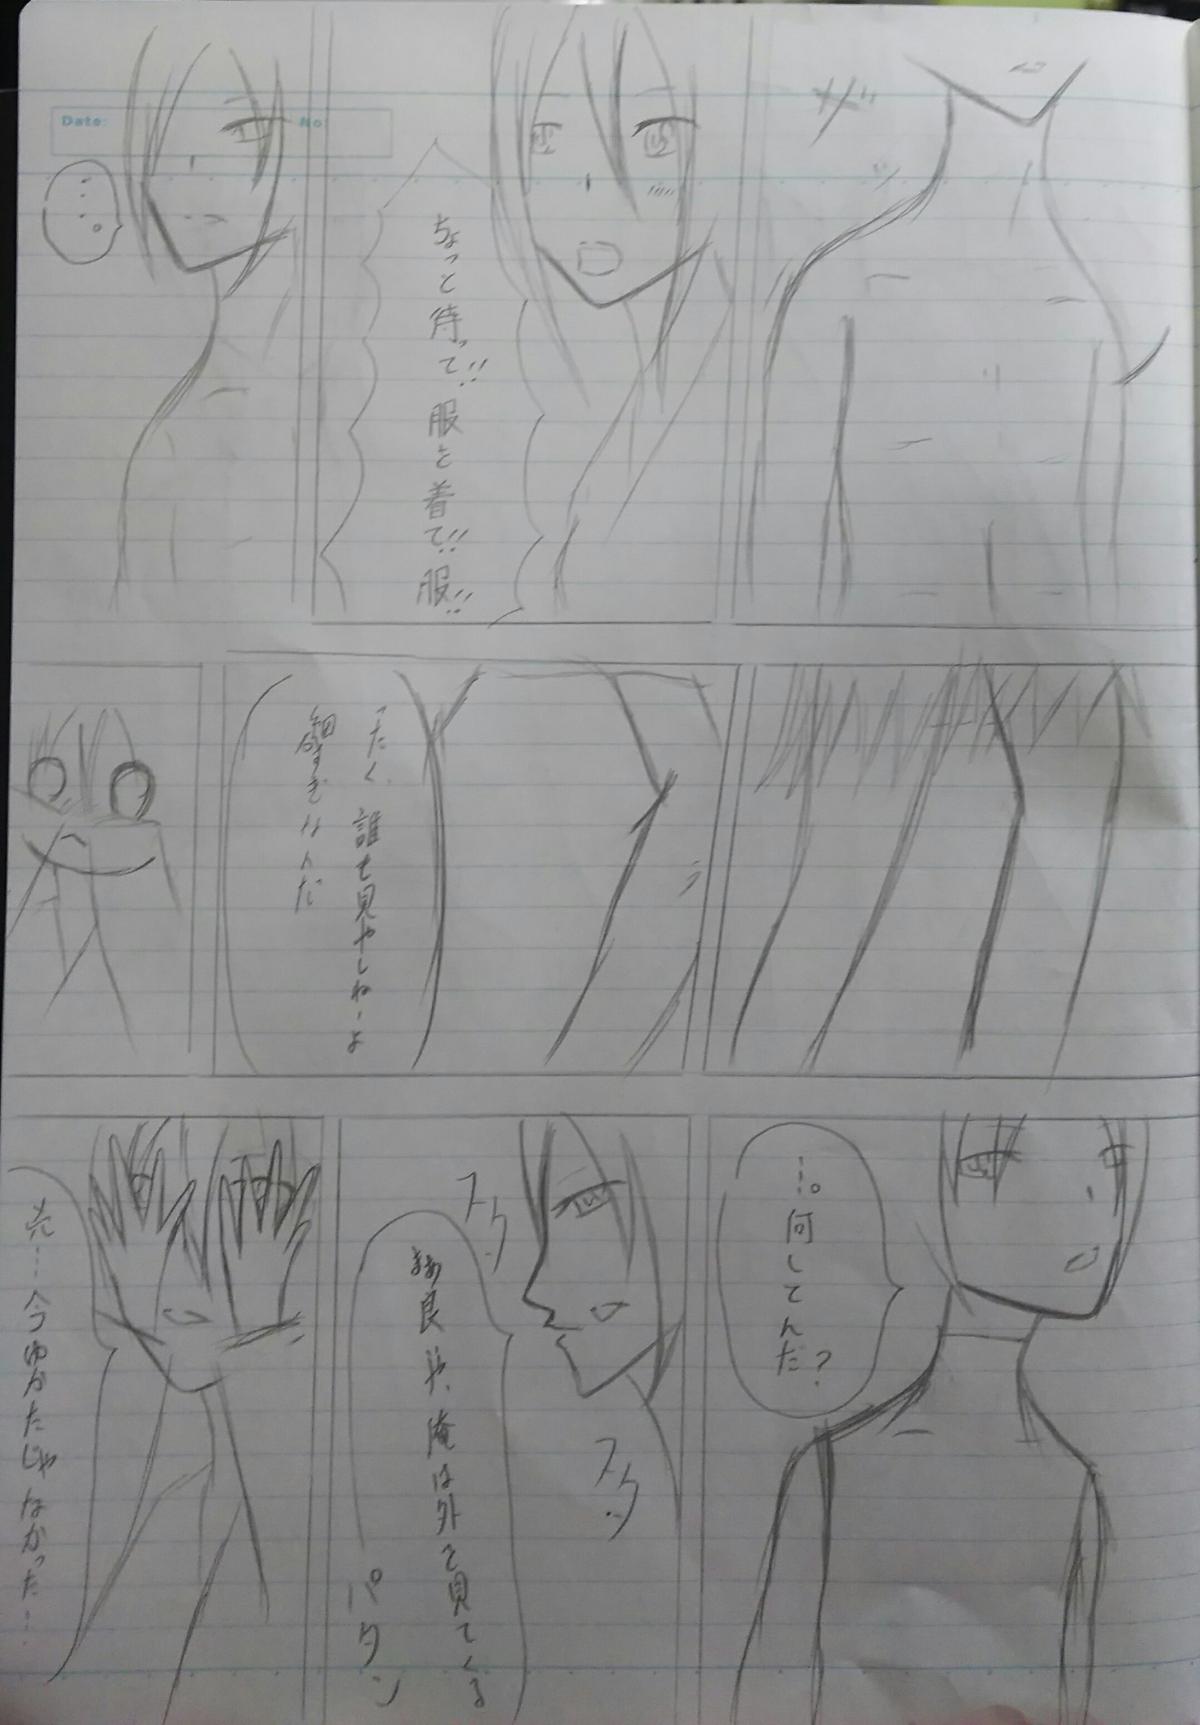 ザッ
ちょっと待って!!服を着て!!服!!
…。
Date:
No:
ったく、誰も見やしねーよ
細すぎなんだ
…。何してんだ?
スタ
スタ
まあ良いや、俺は外を見てくる
パタン
売……今ゆかたじゃなかった…